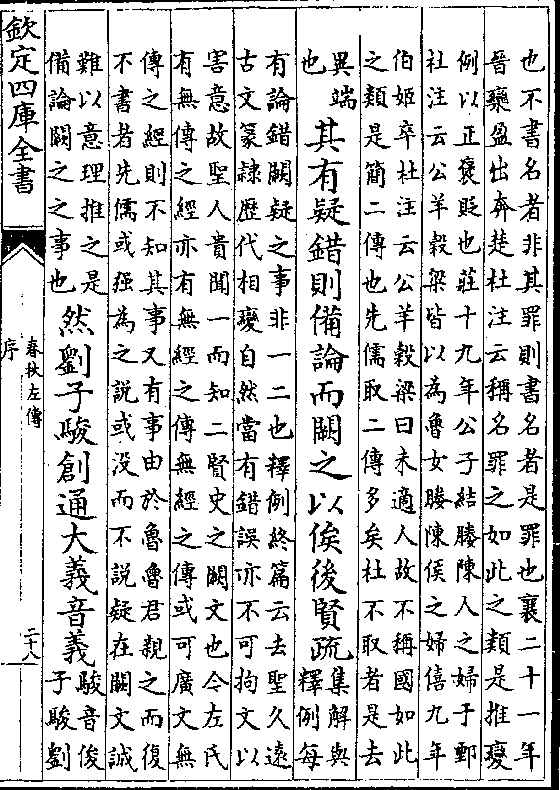 也不書名者非其罪則書名者是罪也襄二十一年
晉欒盈出奔楚杜注云稱名罪之如此之類是推變
例以正褒貶也莊十九年公子結媵陳人之婦于鄄
杜注云公羊榖梁皆以為魯女媵陳侯之婦僖九年
伯姬卒杜注云公羊榖梁曰未適人故不稱國如此
之類是簡二傳也先儒取二傳多矣杜不取者是去
異端
也其有疑錯則備論而闕之以俟後賢疏集解與
釋例每
有論錯闕疑之事非一二也釋例終篇云去聖久遠
古文篆隸歷代相變自然當有錯誤亦不可拘文以
害意故聖人貴聞一而知二賢史之闕文也今左氏
有無傳之經亦有無經之傳無經之傳或可廣文無
傳之經則不知其事又有事由於魯魯君親之而復
不書者先儒或强為之說或没而不說疑在闕文誠
難以意理推之是
備論闕之之事也然劉子駿創通大義音義駿音俊
子駿劉
欽定四庫全書
春秋左傳
序
二十八